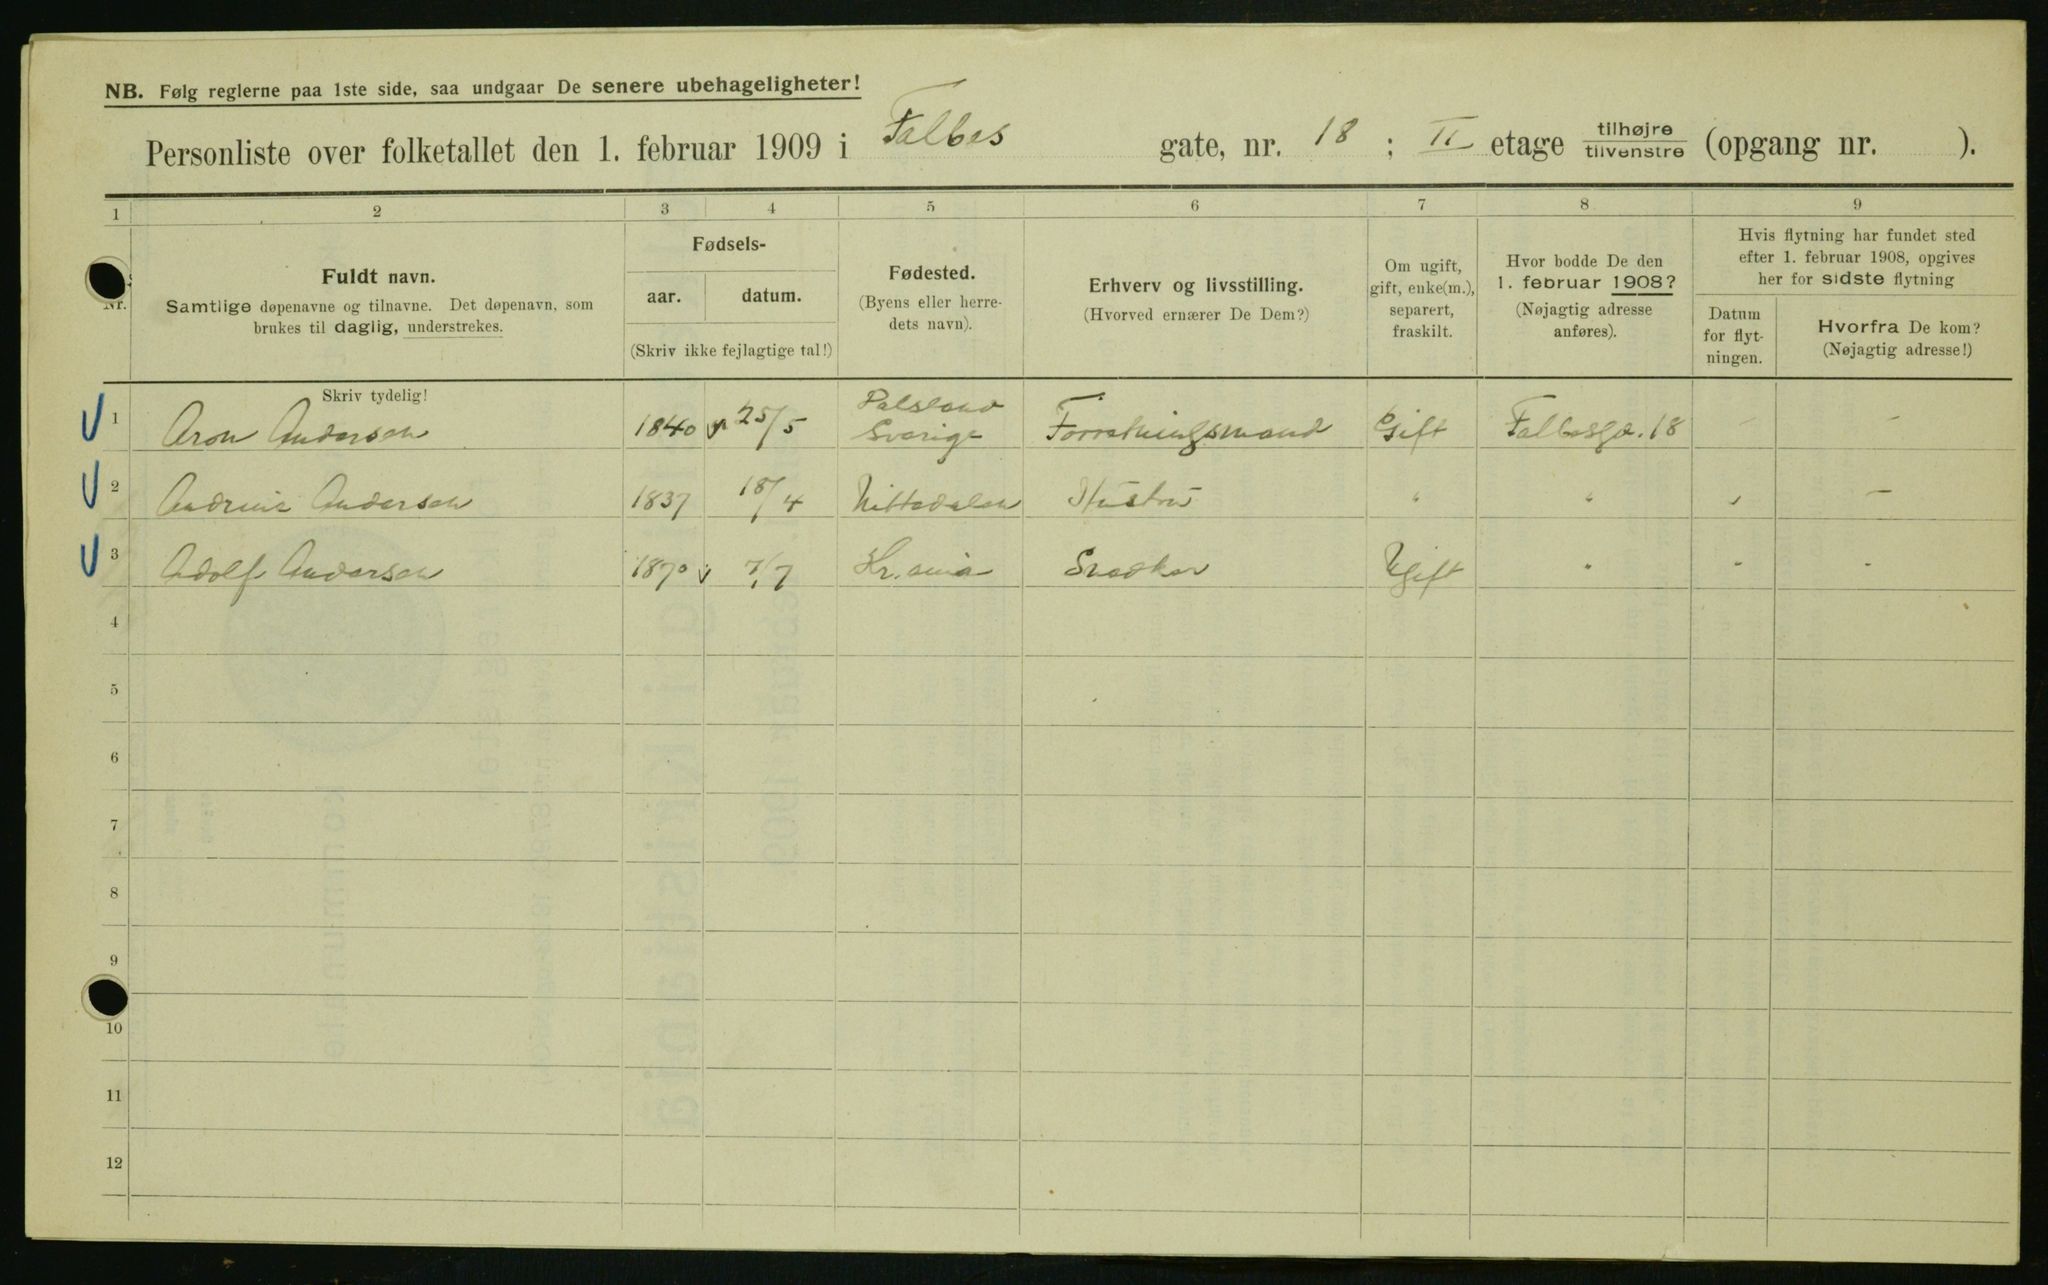 NB. Følg reglerne paa 1ste side, saa undgaar De senere ubehageligheter!
Personliste over folketallet den 1. februar 1909 i Falbes gate, nr. 18 ; II etage tilhøjre tilvenstre (opgang nr. ).
1 2 3 4 5 6 7 8 9
Nr.
Fuldt navn.
Samtlige døpenavne og tilnavne. Det døpenavn, som
brukes til daglig, understrekes.
Fødsels-
aar. datum.
(Skriv ikke fejlagtige tal!)
Fødested.
(Byens eller herre-
dets navn).
Erhverv og livsstilling.
(Hvorved ernærer De Dem?)
Om ugift,
gift, enke(m.),
separert,
fraskilt.
Hvor bodde De den
1. februar 1908?
(Nøjagtig adresse
anføres).
Hvis flytning har fundet sted
efter 1. februar 1908, opgives
her for sidste flytning
Datum
for flyt-
ningen.
Hvorfra De kom?
(Nøjagtig adresse!)
Skriv tydelig!
1 Aron Andersen 1840 25/5 Sverige Forretningsmand Gift Falbesga. 18 - -
2 Andersen 1837 18/4 Nittedalen Hustru " " " -
3 Adolf Andersen 1870 7/7 Kr.ania Snedker Ugift " " "
4
5
6
7
8
9
10
11
12